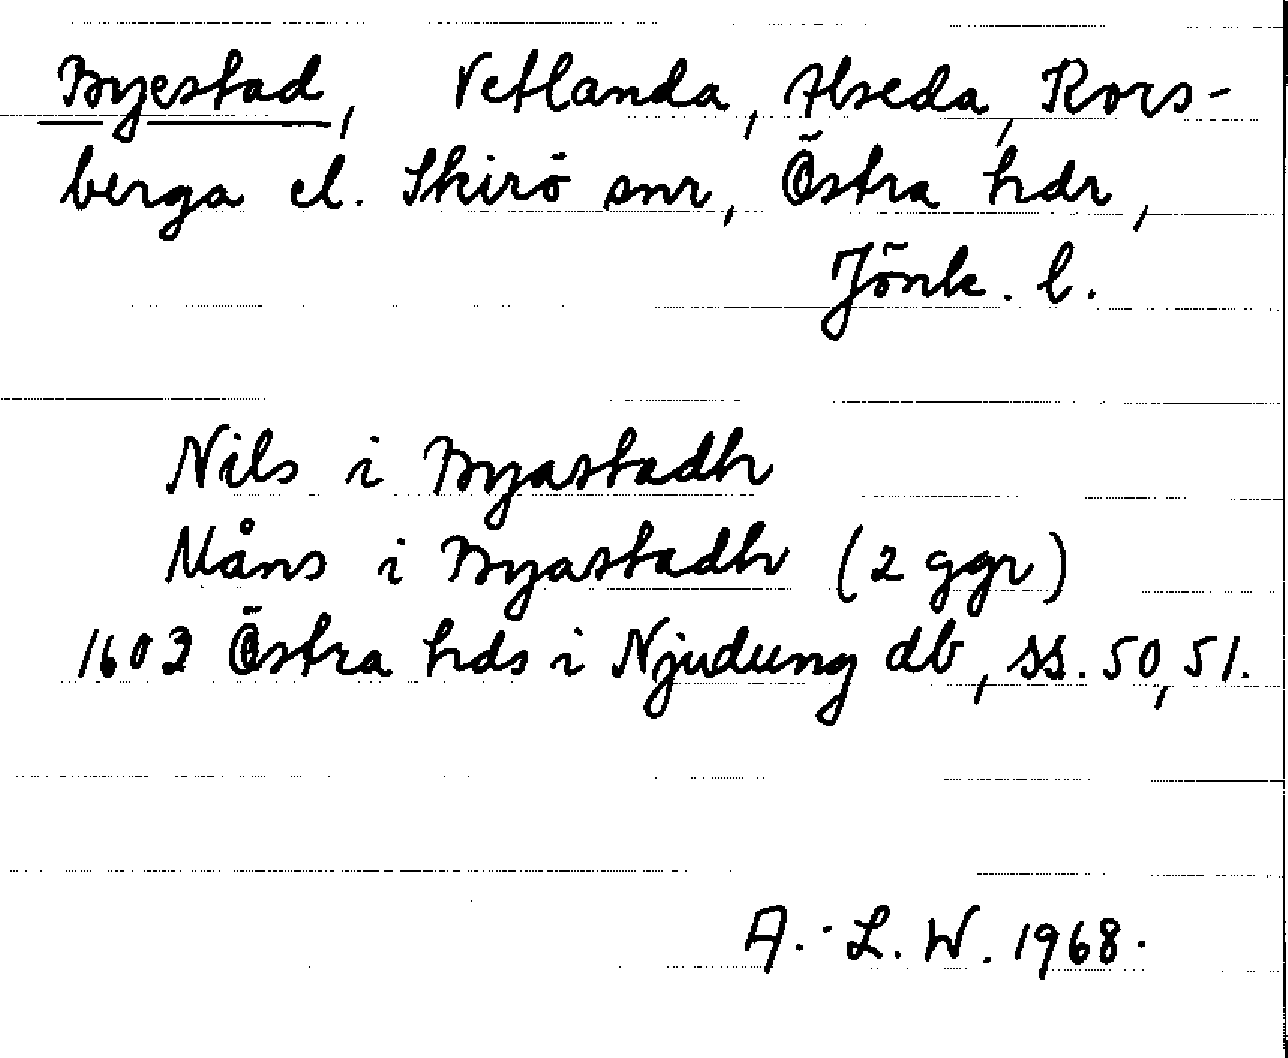 Byestad, Vetlanda, Alseda, Kors-
berga el. Skirö snr, Östra hdr,
Jönk. l.
Nils i Byastadh
Måns i Byastadh (2 ggr)
1603 Östra hds i Njudung db, ss. 50, 51.
A.-L. W. 1968.